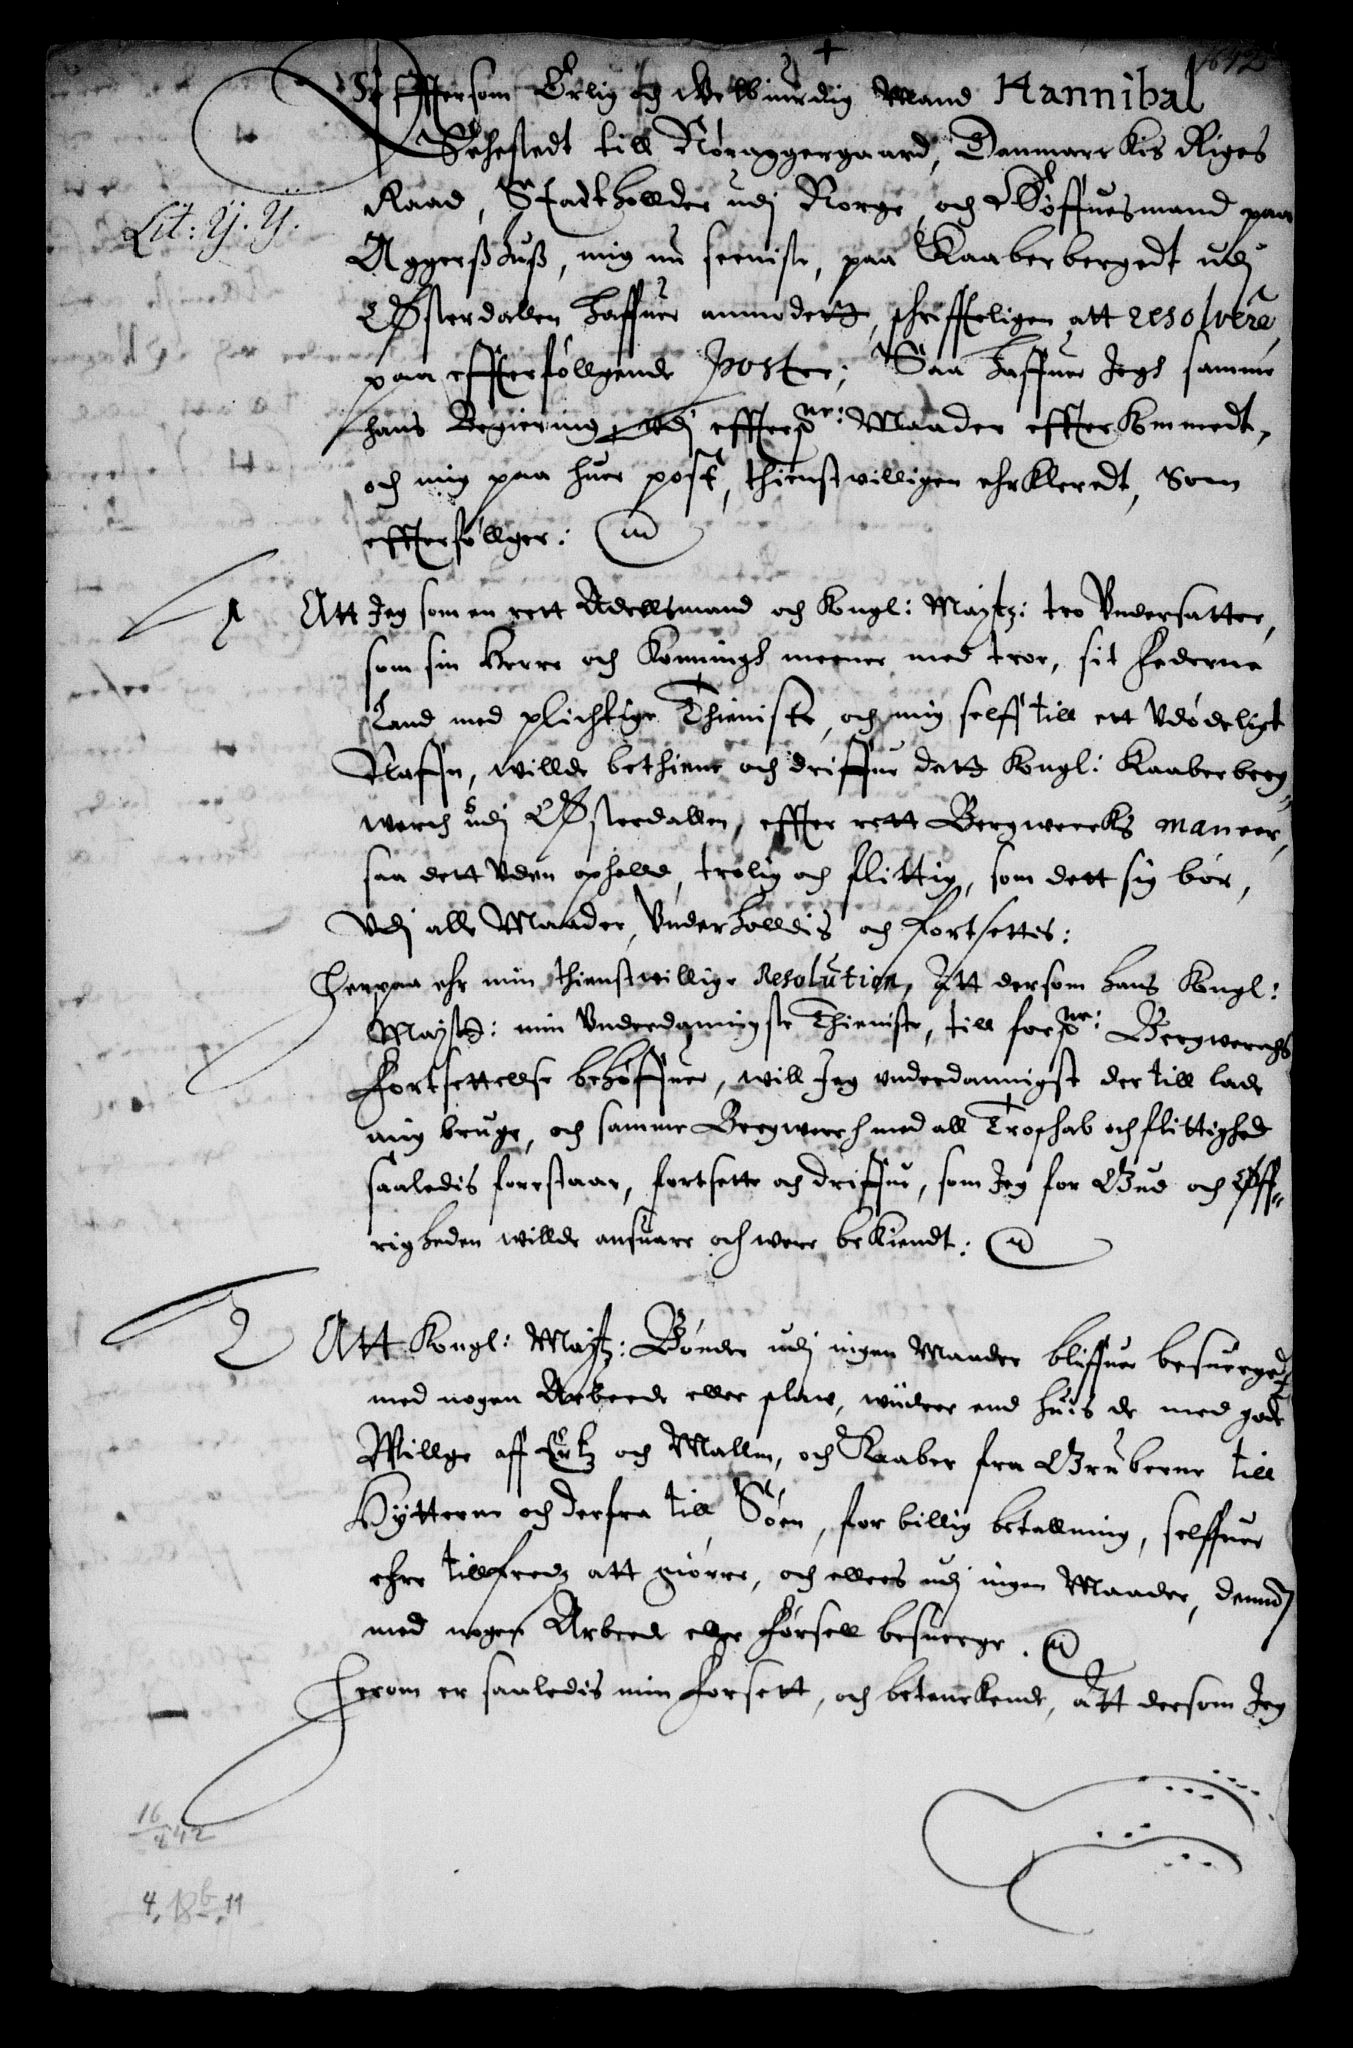 1642
Effttersom Erlig och Welbiurdig Mand Hannibal
Sehestedt till Nøraggergaard, Danmarckis Riges
Raad, Stadtholder udj Norge, och Høffuesmand paa
Lit: Y. Y.
Aggerßhuß, mig nu seeniste, paa Kaaberbergedt udj
Østerdallen haffuer anmodett, schrifftteligen att resolvere
paa effterføllgende Poster; Saa haffuer Jegh samme
hans Begiering udj effterschr: Maader effterkommedt,
och mig paa huer post, thienstvilligen ehrkleredt, Som
effterføllger:
1 Att Jeg som en rett Adellsmand och Kongl: Maytz: tro Undersatter,
som sin Herre och Konningh meener med troe, sit Federne
Land med plichtige Thieniste, och mig selff till ett Udødeligt
Naffn, willde bethiene och driffue dett Kongl: Kaaberberg-
werch udj Østerdallen, effter rett Bergwercks maneer,
saa dett Uden ophold, trolig och flittig, som dett sig bør,
Udj alle Maader, Underholdis och fortsettes:
Herpaa ehr min thienstwillige Resolution, Att dersom hans Kongl:
Maytt: min Underdannigste Thieniste, till forschr: Bergwerchs
Fortsettellse behøffuer, will Jeg underdannigst der till lade
mig bruge, och samme Bergwerch med all Troschab och flittighed
saaledis forestaae, fortsette och driffue, som Jeg for Gud och Øff-
righeden willde ansuare och were bekiendt:
2 Att Kongl: Maytz: Bønder udj ingen Maader bliffuer besuergedt
med nogen Arbeede eller plaw, wiidere end huis de med gode
Willge aff Kull och Mallm, och Kaaber fra Gruberne till
Hytterne och derfra till Søen, for billig betallning, selffuer
ehre tillfredz att giørre, och ellers udj ingen Maader, dennem
med nogen Arbeede eller Førsell besuerge.
Herom er saaledis min Forsett, och betenckende, att dersom Jeg
16
442
4. 18 b. 11